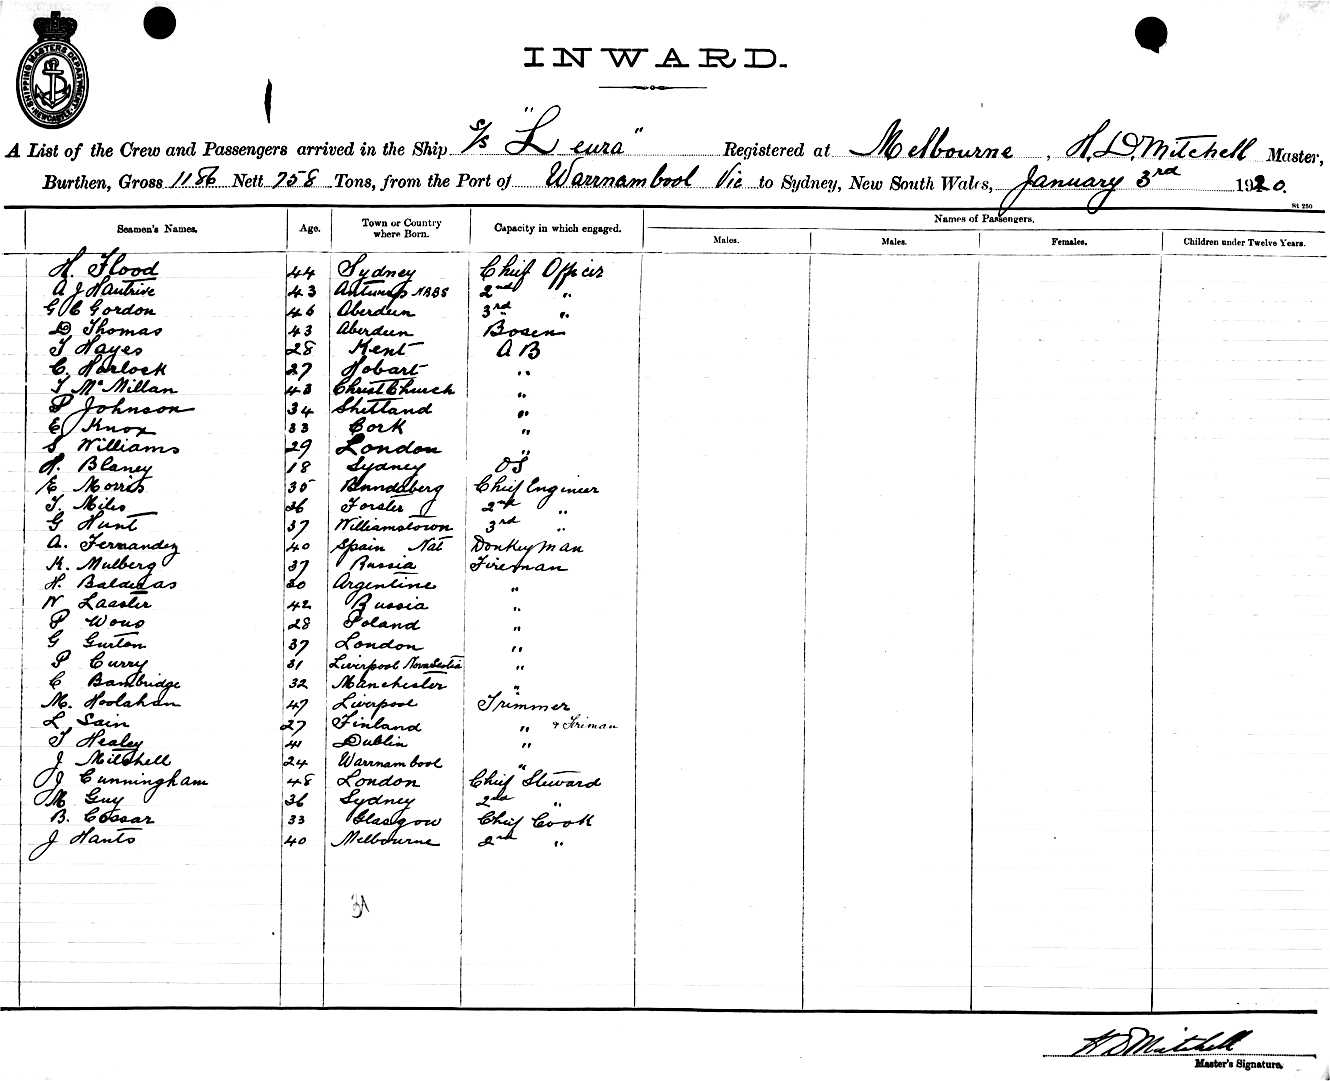 SHIPPING MASTERS DEPARTMENT NEWCASTLE
INWARD.
A List of the Crew and Passengers arrived in the Ship S/S "Leura" Registered at Melbourne, H. D. Mitchell Master,
Burthen, Gross 1186 Nett 758 Tons, from the Port of Warrnambool Vic to Sydney, New South Wales, January 3rd 1920.
St 250
Seamen's Names. Age. Town or Country where Born. Capacity in which engaged. Names of Passengers.
Males. Males. Females. Children under Twelve Years.
H. Flood 44 Sydney Chief Officer
A J Hautrive 43 Antwerp NBBS 2nd "
G C Gordon 46 Aberdeen 3rd "
D Thomas 43 Aberdeen Bosen
T Hayes 28 Kent A B
C. Horlock 27 Hobart "
T McMillan 43 ChristChurch "
P Johnson 34 Shetland "
E Knox 33 Cork "
S Williams 29 London "
H. Blaney 18 Sydney OS
E Morris 35 Bundaberg Chief Engineer
T. Miles 26 Forster 2nd "
G Hunt 37 Williamstown 3rd "
A. Fernandez 40 Spain Nat Donkeyman
K. Mulberg 37 Russia Fireman
H. Balderas 30 Argentine "
N Laaster 42 Russia "
P Wous 28 Poland "
G Gurton 37 London "
P Curry 31 Liverpool Nova Scotia "
C Bambridge 32 Manchester "
M. Hoolahan 47 Liverpool Trimmer
L Sain 27 Finland " & Fireman
T Healey 41 Dublin "
J Mitchell 24 Warrnambool "
J Cunningham 48 London Chief Steward
M Guy 36 Sydney 2nd "
B. Cossar 33 Glasgow Chief Cook
J Hants 40 Melbourne 2nd "
31
H D Mitchell
Master's Signature.